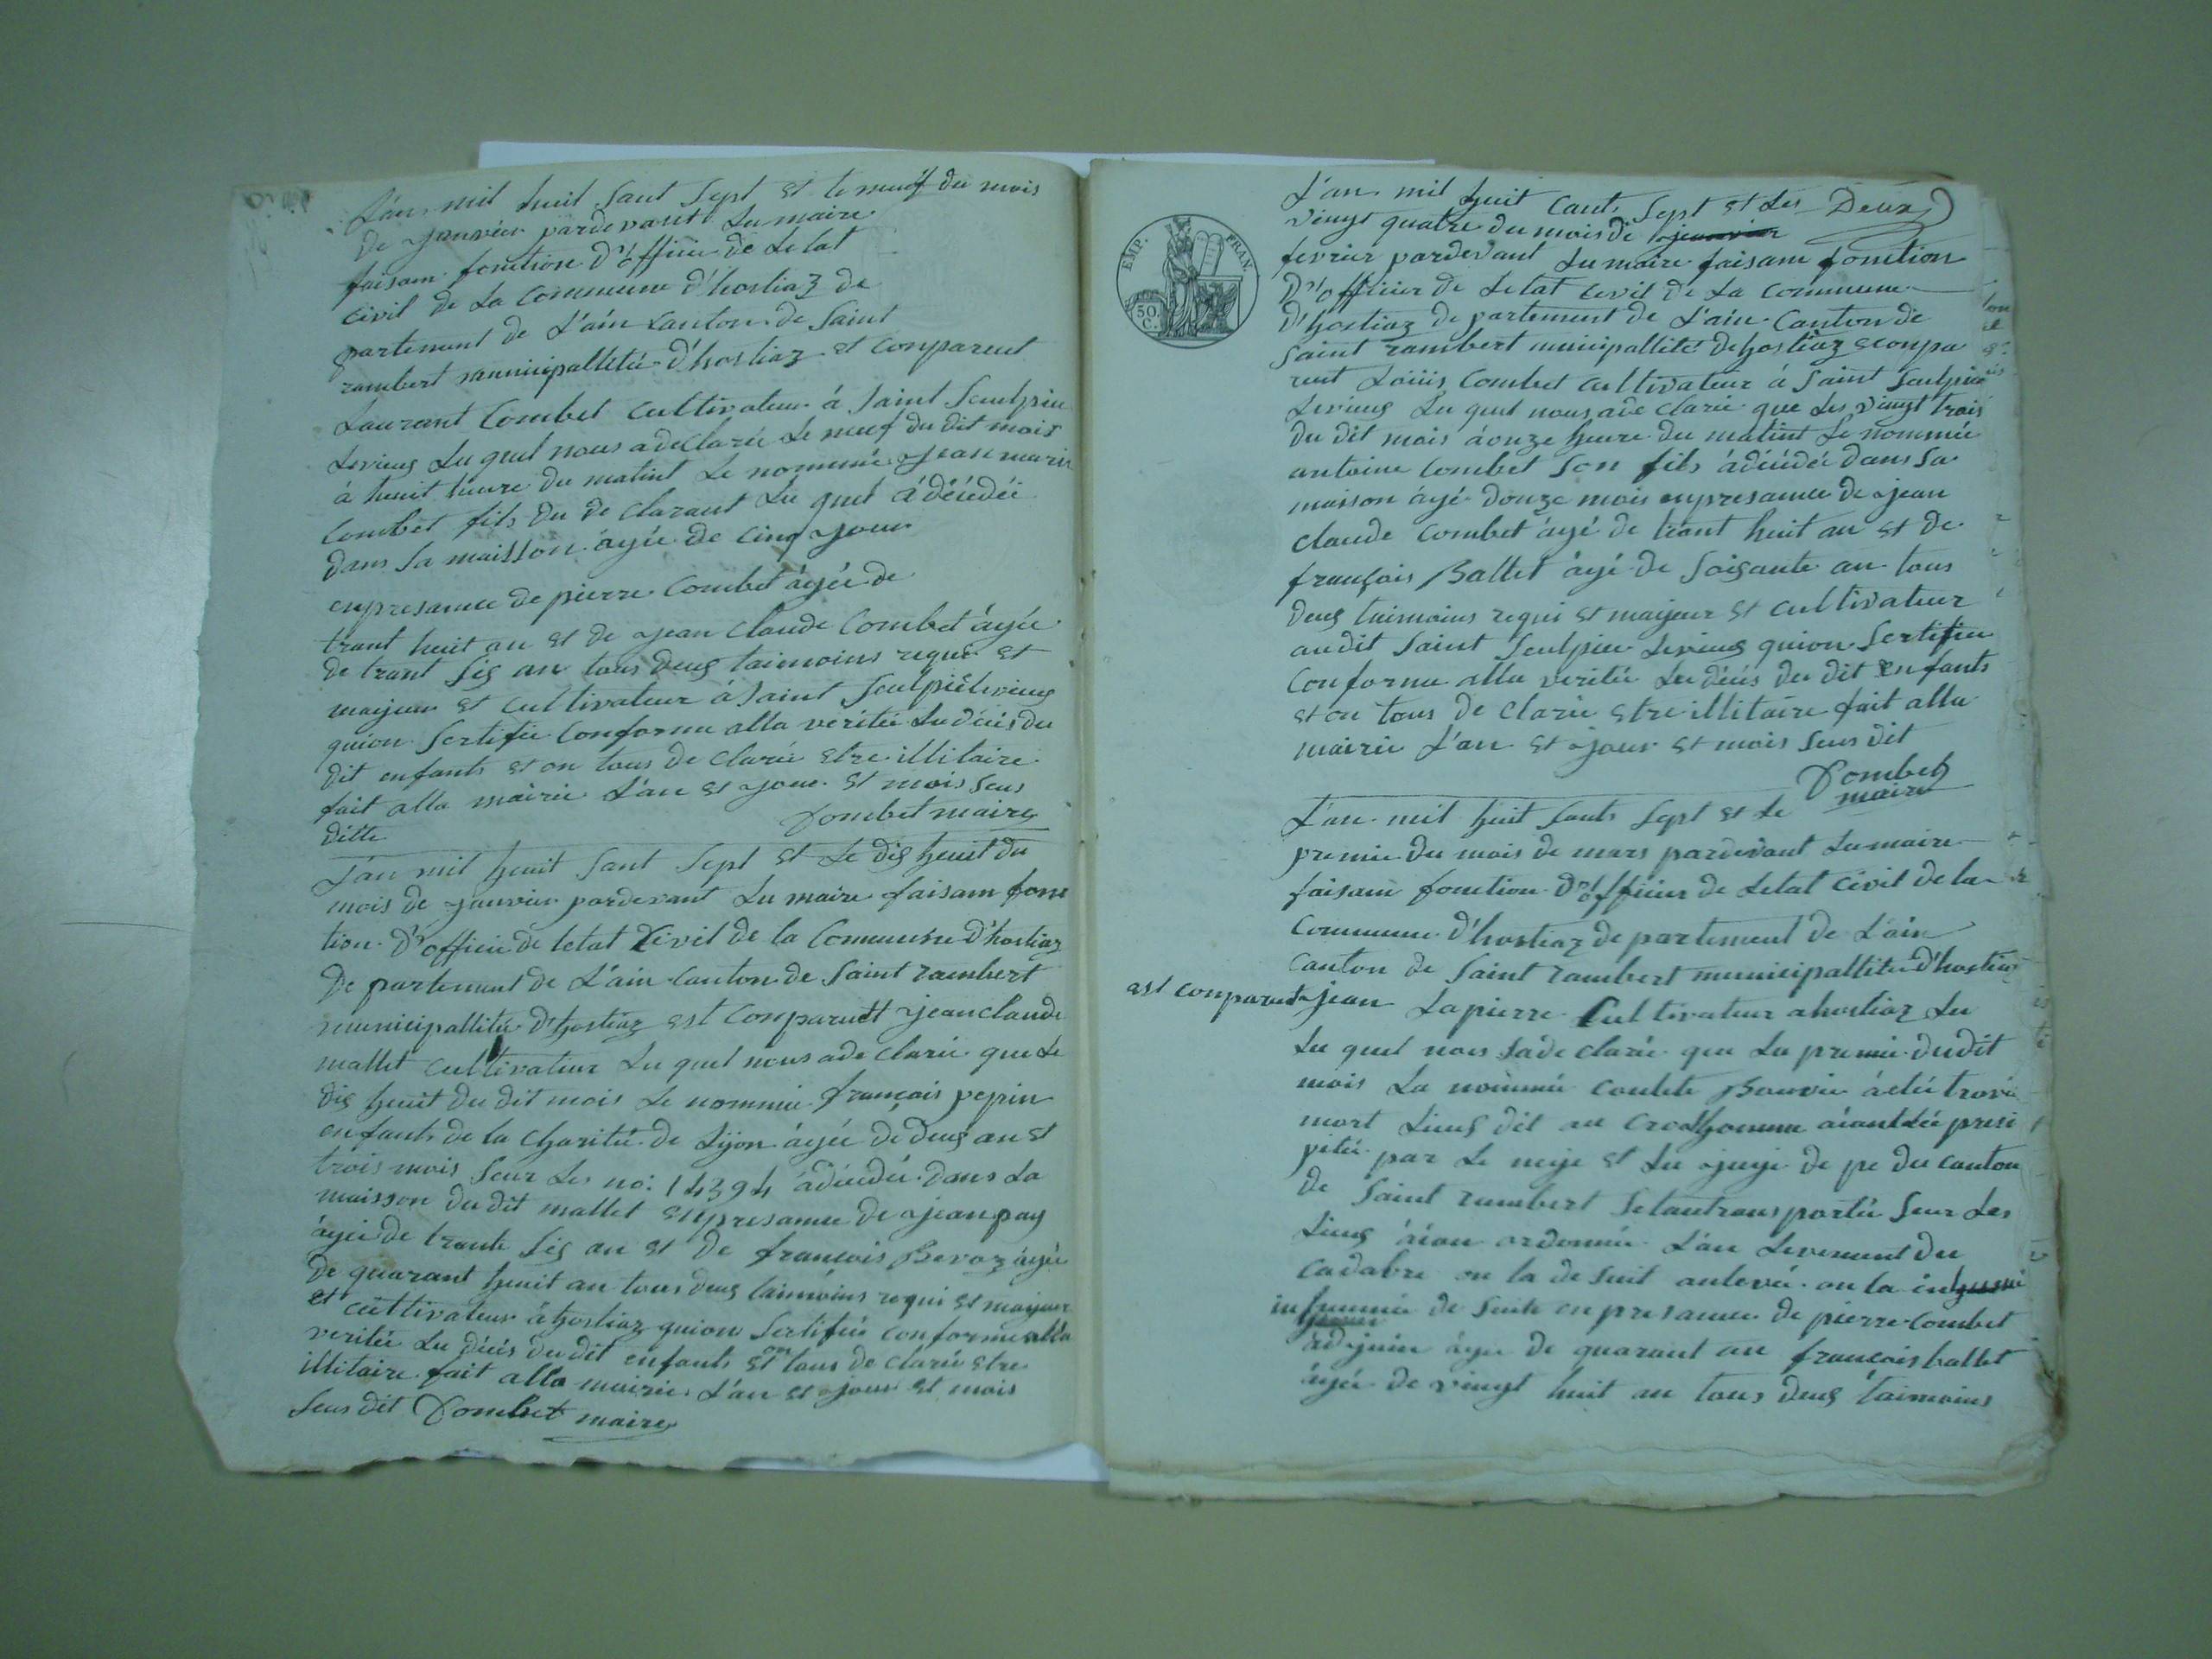 L'an mil huit Sant Sept et le neuf du mois
de janvier pardevant Lu maire
faisam fonction d'officie de Letat
civil de La Commune d'hostiaz de
partement de L'ain canton de Saint
rambert municipallitée d'hostiaz et conparent
Laurant Combet Cultivateur á Saint Seulpice
Levieug Lu quel nous adeclarée Le neuf du dit mois
à heuit heure du matint Le nommée jean marie
Combet fils du de clarant Lu quel ádéudéé
dans sa maisson ágée de cinq jour
enpresance de pierre Combet ágée de
trant heuit an et de jean claude Combet ágée
de trant sig an tous deug taimoins requi et
majeur et Cultivateur á Saint Seulpiëlevieug
quion Sertifie Conforme alla veritée Ludéciés du
dit enfants et on tous de clarée etre illitaire
fait alla mairie L'an et jour et mois seus
ditte Combet maire
L'an mil heuit Sant Sept et Le dig heuit du
mois de janvier pardevant Lu maire faisam fonc
tion d'officie de letat Civil de la Commune d'hostiaz
de partement de L'ain canton de Saint rambert
municipallitée d'hostiaz est Conparuett jean claude
mallet cultivateur Lu quel nous ade clarée que Le
dig heuit du dit mois Le nommée françois pepin
enfants de la Charitée de Lijon ágée de deug an et
trois mois seur Les no: 14394 ádéudée dans La
maisson du dit mallet enpresance de jean pay
ágée de trante sig an et de francois Bevoz ágée
de quarant heuit an tous deug taimoins requi et majeur
et cultivateur á hostiaz quion Sertifiée conforme alla
veritée Lu déciés du dit enfants et on tous de clarée etre
illitaire fait alla mairie L'an et jour et mois
seus dit Combet maire
EMP. FRAN.
50. C.
L'an mil huit Cant Sept et Les Deux
vingt quatre du mois de janvier
fevrier pardevant Lu maire faisam fonction
d'officier de Letat civil de La Commune
d'hostiaz de partement de L'ain Canton de
Saint rambert municipallité dehostiaz econpa
rent Loüis Combet cultivateur á Saint Seulpice
Levieug Lu quel nous ade clarée que Les vingt trois
du dit mois áonze heure du matint Le nommée
antoine Combet son fils ádéudée dans sa
maison ágé douze mois enpresance de jean
claude Combet ágé de trant heuit an et de
françois Ballet ágé de soigante an tous
deug taimoins requi et majeur et cultivateur
audit Saint Seulpice Levieug quion Sertifiee
Conforme alla veritée Ludéciés du dit enfants
et on tous de clarée etre illitaire fait alla
mairie L'an et jour et mois seus dit
Combet
maire
L'an mil huit Sants Sept et Le
premie du mois de mars pardevant Lu maire
faisam fonction d'officier de Letat Civil de la
Commune d'hostiaz de partement de L'ain
canton de Saint rambert municipallitée d'hostiaz
est conparent jean Lapierre Cultivateur ahostiaz Lu
Lu quel nous ade clarée que Lu premie dudit
mois La nommée Bouvie áétée trové
mort Lieug dit au aiantétée presi
pitée par Le neije et Lu juge de pe du canton
de Saint rambert Setantransportée seur Les
Lieug áion ordonnée L'an Levement du
cadabre on la de suit anlevée on la
inhumée de suite enpresance de pierre Combet
adjoin ágée de quarant an francois ballet
ágée de vingt huit an tous deug taimoins